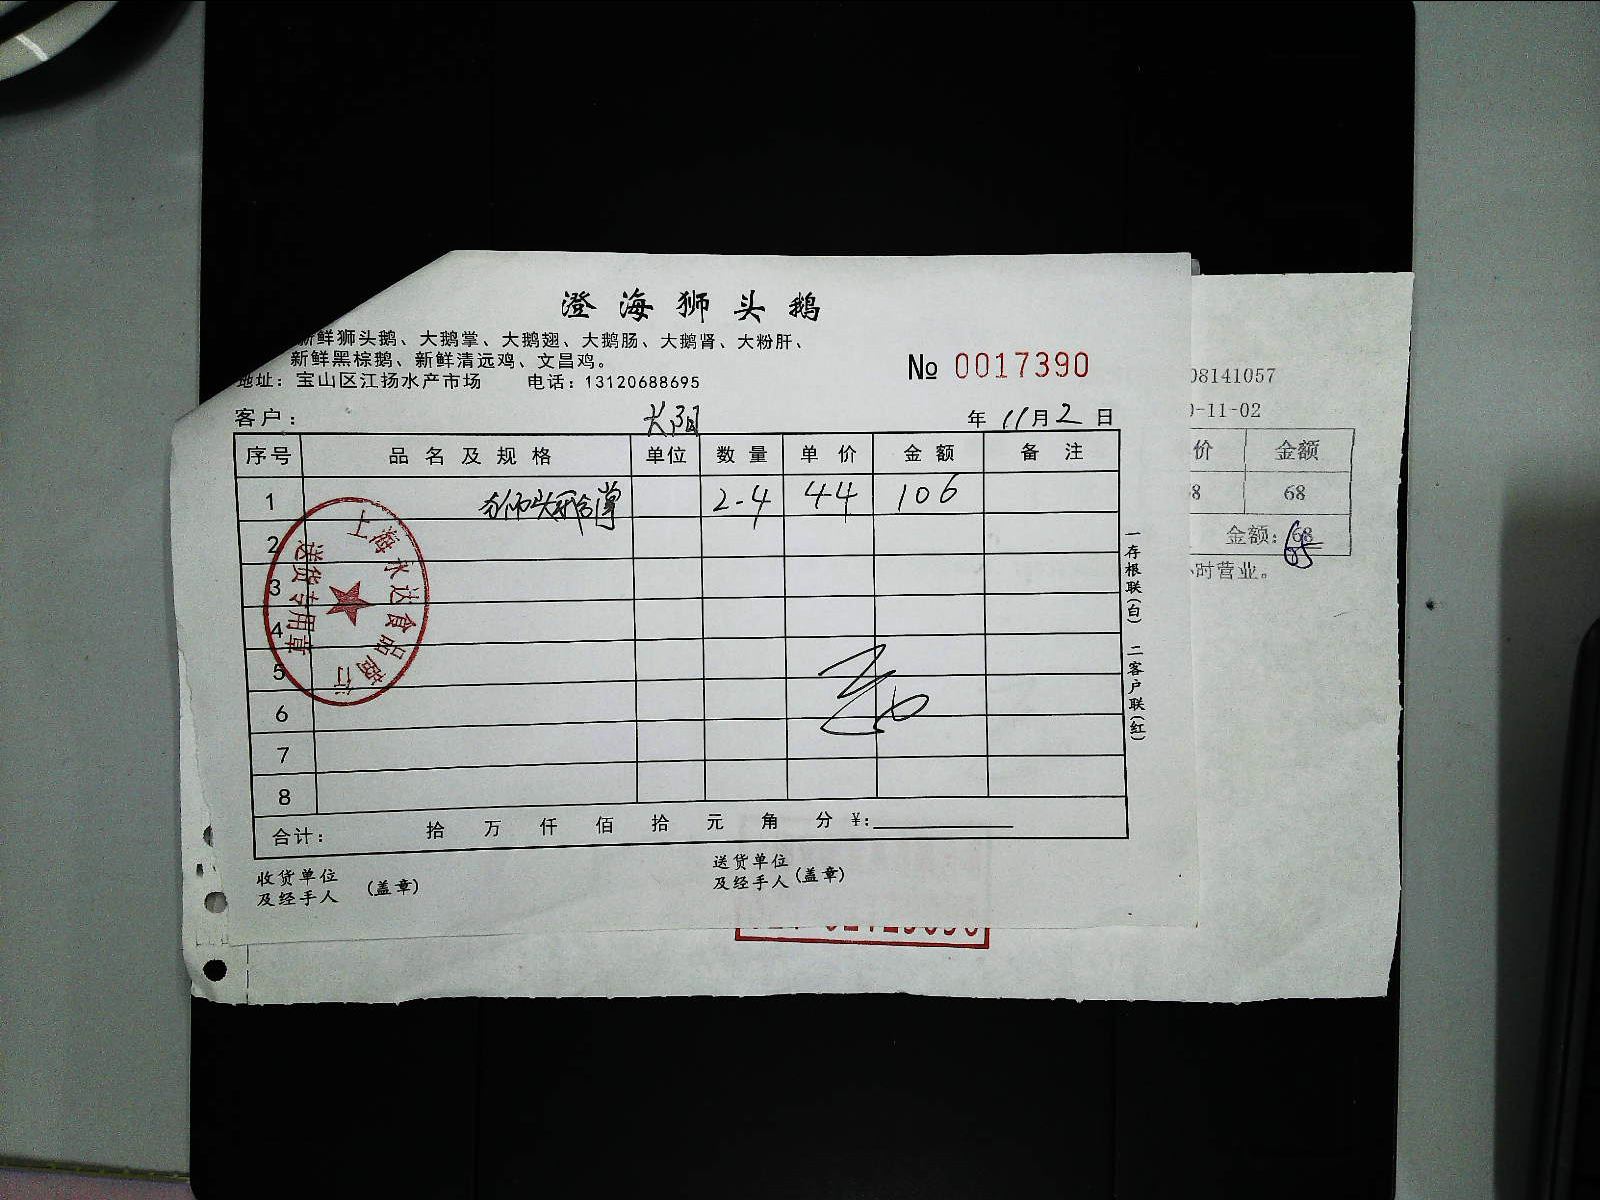 澄海狮头鹅
新鲜狮头鹅、大鹅掌、大鹅翅、大鹅肠、大鹅肾、大粉肝、
新鲜黑棕鹅、新鲜清远鸡、文昌鸡。
地址：宝山区江扬水产市场 电话：13120688695
№ 0017390
客户： 年 11月2日
序号 品名及规格 单位 数量 单价 金额 备注
1 狮头鹅掌 2-4 44 106
2
3
4
5
6
7
8
合计： 拾 万 仟 佰 拾 元 角 分 ¥:
收货单位
及经手人 (盖章)
送货单位
及经手人 (盖章)
一存根联(白) 二客户联(红)
上海水达食品商行
送货专用章
08141057
-11-02
价 金额
8 68
金额：68
65
小时营业。